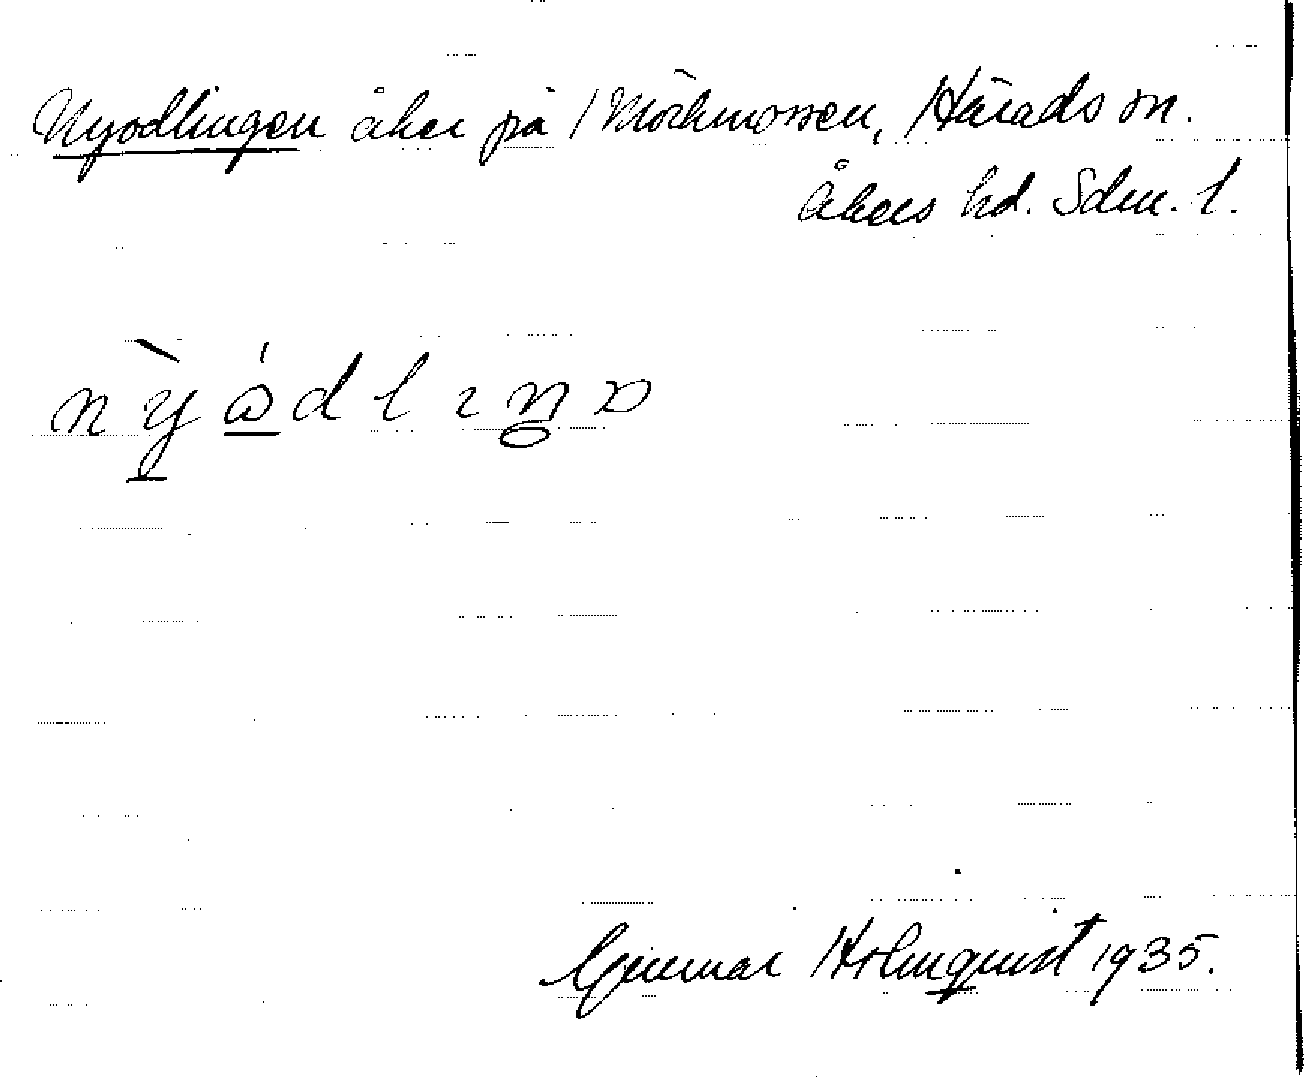 Nyodlingen åker på Mörkmossen, Härads sn.
Åkers hd. Sdm. l.
Gunnar Holmquist 1935.